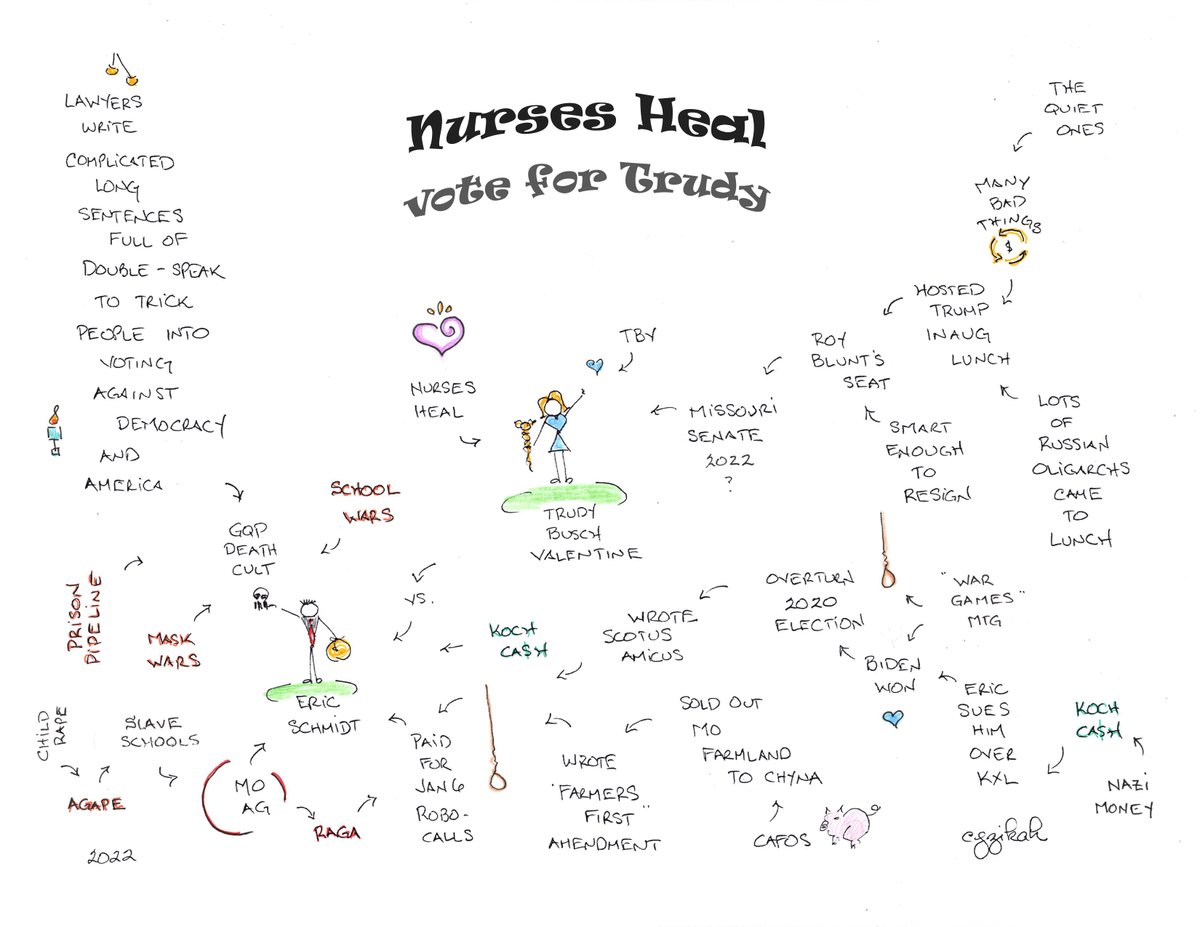 Nurses Heal
vote for Trudy
LAWYERS
WRITE
COMPLICATED
LONG
SENTENCES
FULL OF
DOUBLE-SPEAK
TO TRICK
PEOPLE INTO
VOTING
AGAINST
DEMOCRACY
AND
AMERICA
THE
QUIET
ONES
MANY
BAD
THINGS
$
HOSTED
TRUMP
INAUG
LUNCH
LOTS
OF
RUSSIAN
OLIGARCHS
CAME
TO
LUNCH
ROY
BLUNT'S
SEAT
SMART
ENOUGH
TO
RESIGN
MISSOURI
SENATE
2022
?
TBY
NURSES
HEAL
TRUDY
BUSCH
VALENTINE
VS.
SCHOOL
WARS
GQP
DEATH
CULT
PRISON
PIPELINE
MASK
WARS
ERIC
SCHMIDT
KOCH
CA$H
WROTE
SCOTUS
AMICUS
OVERTURN
2020
ELECTION
"WAR
GAMES"
MTG
BIDEN
WON
ERIC
SUES
HIM
OVER
KXL
KOCH
CA$H
NAZI
MONEY
CHILD
RAPE
AGAPE
SLAVE
SCHOOLS
MO
AG
RAGA
PAID
FOR
JAN 6
ROBO-
CALLS
WROTE
"FARMERS
FIRST"
AMENDMENT
SOLD OUT
MO
FARMLAND
TO CHYNA
CAFOS
2022
cgzikah